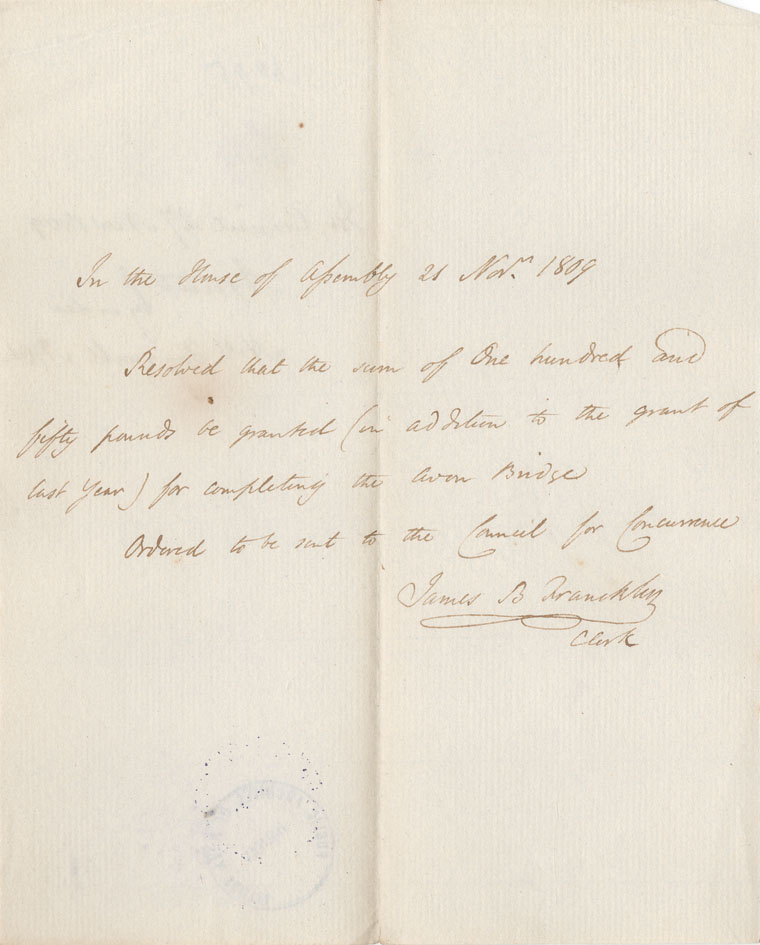 In the House of Assembly 21 Novr. 1809
Resolved that the sum of One hundred and
fifty pounds be granted (in addition to the grant of
last year) for completing the Avon Bridge
Ordered to be sent to the Council for Concurrence
James B Francklin
Clerk